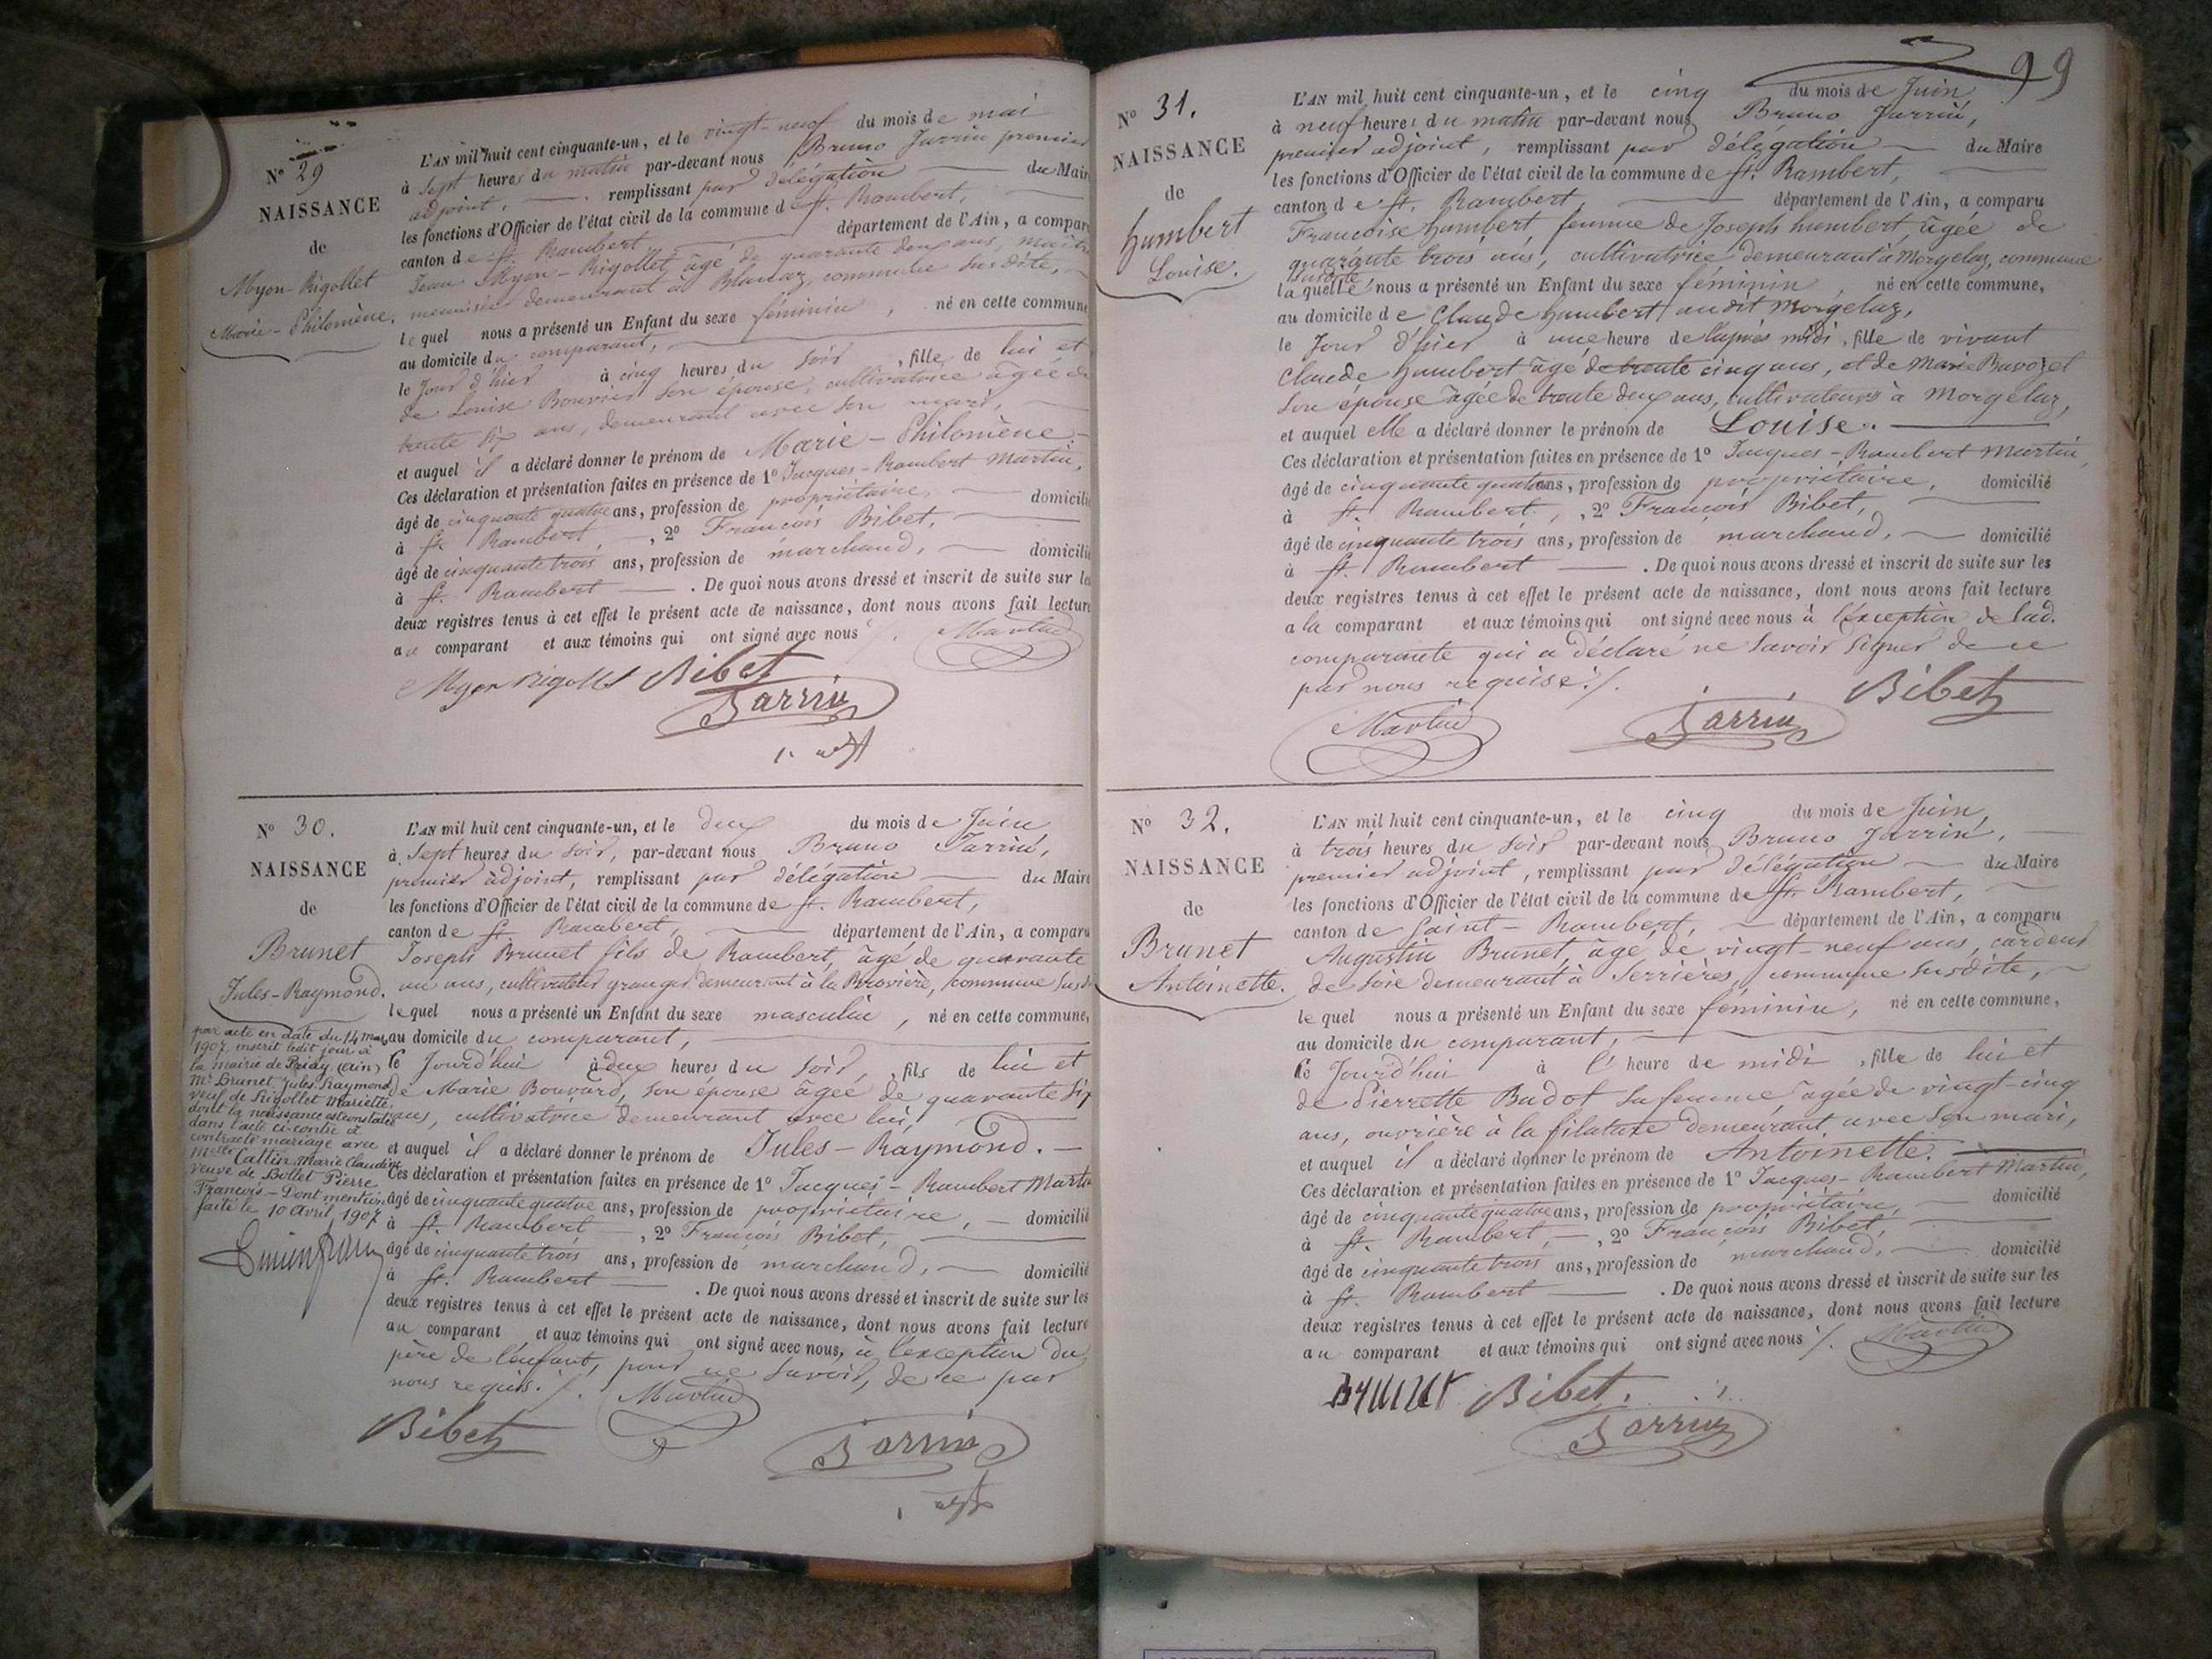 N° 29
NAISSANCE
de
Myon-Rigollet
Marie-Philomène.
L'AN mil huit cent cinquante-un, et le vingt-neuf du mois de mai
à sept heures du matin par-devant nous Bruno Jarrin premier
adjoint, remplissant par délégation du Maire
les fonctions d'Officier de l'état civil de la commune de St. Rambert,
canton de St. Rambert département de l'Ain, a comparu
Jean Myon-Rigollet, âgé de quarante deux ans, maître
menuisier demeurant à Blanaz, commune susdite,
lequel nous a présenté un Enfant du sexe féminin, né en cette commune
au domicile du comparant,
le Jour d'hier à cinq heures du soir, fille de lui et
de Louise Bouvier son épouse, cultivatrice âgée de
trente six ans, demeurant avec son mari,
et auquel il a déclaré donner le prénom de Marie-Philomène.
Ces déclaration et présentation faites en présence de 1° Jacques-Rambert Martin,
âgé de cinquante quatre ans, profession de propriétaire, domicilié
à St. Rambert, 2° François Bibet,
âgé de cinquante trois ans, profession de marchand, domicilié
à St. Rambert. De quoi nous avons dressé et inscrit de suite sur les
deux registres tenus à cet effet le présent acte de naissance, dont nous avons fait lecture
au comparant et aux témoins qui ont signé avec nous ./. Martin
Myon Rigollet Bibet
Jarrin
N° 30.
NAISSANCE
de
Brunet
Jules-Raymond.
par acte en date du 14 Mars
1907, inscrit ledit jour à
la mairie de Priay (Ain)
Mr Brunet Jules Raymond
veuf de Rigollet Mariette,
dont la naissance est constatée
dans l'acte ci-contre a
contracté mariage avec
Melle Cattin Marie Claudine
veuve de Bollet Pierre
François - Dont mention
faite le 10 Avril 1907
L'AN mil huit cent cinquante-un, et le deux du mois de Juin
à sept heures du soir, par-devant nous Bruno Jarrin,
premier adjoint, remplissant par délégation du Maire
les fonctions d'Officier de l'état civil de la commune de St. Rambert,
canton de St. Rambert, département de l'Ain, a comparu
Joseph Brunet fils de Rambert, âgé de quarante
un ans, cultivateur granger demeurant à la Brovière, commune susd.
lequel nous a présenté un Enfant du sexe masculin, né en cette commune,
au domicile du comparant,
ce Jourd'hui à deux heures du soir, fils de lui et
de Marie Bouvard, son épouse âgée de quarante six
ans, cultivatrice demeurant avec lui,
et auquel il a déclaré donner le prénom de Jules-Raymond.
Ces déclaration et présentation faites en présence de 1° Jacques-Rambert Martin
âgé de cinquante quatre ans, profession de propriétaire, domicilié
à St. Rambert, 2° François Bibet,
âgé de cinquante trois ans, profession de marchand, domicilié
à St. Rambert. De quoi nous avons dressé et inscrit de suite sur les
deux registres tenus à cet effet le présent acte de naissance, dont nous avons fait lecture
au comparant et aux témoins qui ont signé avec nous, à l'exception du
père de l'enfant, pour ne savoir, de ce par
nous requis ./. Martin
Bibet Jarrin
99
N° 31.
NAISSANCE
de
humbert
Louise.
L'AN mil huit cent cinquante-un, et le cinq du mois de Juin,
à neuf heures du matin par-devant nous Bruno Jarrin,
premier adjoint, remplissant par délégation du Maire
les fonctions d'Officier de l'état civil de la commune de St. Rambert,
canton de St. Rambert, département de l'Ain, a comparu
Françoise humbert femme de Joseph humbert, âgée de
quarante trois ans, cultivatrice demeurant à Morgelaz, commune
susdite
laquelle nous a présenté un Enfant du sexe féminin, né en cette commune,
au domicile de Claude humbert audit Morgelaz,
le Jour d'hier à une heure de l'après midi, fille de vivant
Claude humbert âgé de trente cinq ans, et de Marie Bavozet
son épouse âgée de trente deux ans, cultivateurs à Morgelaz,
et auquel elle a déclaré donner le prénom de Louise.
Ces déclaration et présentation faites en présence de 1° Jacques-Rambert Martin,
âgé de cinquante quatre ans, profession de propriétaire, domicilié
à St. Rambert, 2° François Bibet,
âgé de cinquante trois ans, profession de marchand, domicilié
à St. Rambert. De quoi nous avons dressé et inscrit de suite sur les
deux registres tenus à cet effet le présent acte de naissance, dont nous avons fait lecture
a la comparant et aux témoins qui ont signé avec nous à l'exception de lad.
comparante qui a déclaré ne savoir signer de ce
par nous requise ./.
Martin Jarrin Bibet
N° 32.
NAISSANCE
de
Brunet
Antoinette.
L'AN mil huit cent cinquante-un, et le cinq du mois de Juin,
à trois heures du soir par-devant nous Bruno Jarrin,
premier adjoint, remplissant par délégation du Maire
les fonctions d'Officier de l'état civil de la commune de St. Rambert,
canton de Saint-Rambert, département de l'Ain, a comparu
Augustin Brunet, âgé de vingt-neuf ans, cardeur
de soie demeurant à Serrières, commune susdite,
lequel nous a présenté un Enfant du sexe féminin, né en cette commune,
au domicile du comparant,
ce Jourd'hui à l'heure de midi, fille de lui et
de Pierrette Budot sa femme, âgée de vingt-cinq
ans, ouvrière à la filature demeurant avec son mari,
et auquel il a déclaré donner le prénom de Antoinette.
Ces déclaration et présentation faites en présence de 1° Jacques-Rambert Martin,
âgé de cinquante quatre ans, profession de propriétaire, domicilié
à St. Rambert, 2° François Bibet,
âgé de cinquante trois ans, profession de marchand, domicilié
à St. Rambert. De quoi nous avons dressé et inscrit de suite sur les
deux registres tenus à cet effet le présent acte de naissance, dont nous avons fait lecture
au comparant et aux témoins qui ont signé avec nous ./. Martin
Brunet Bibet.
Jarrin